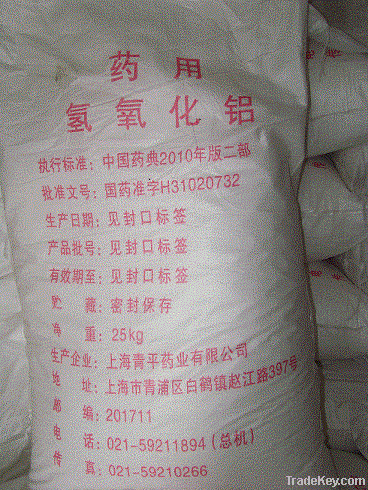 药用
氢氧化铝
执行标准：中国药典2010年版二部
批准文号：国药准字H31020732
生产日期：见封口标签
产品批号：见封口标签
有效期至：见封口标签
贮 藏：密封保存
净 重：25kg
生产企业：上海青平药业有限公司
地 址：上海市青浦区白鹤镇赵江路397号
邮 编：201711
电 话：021-59211894（总机）
传 真：021-59210266
TradeKey.com